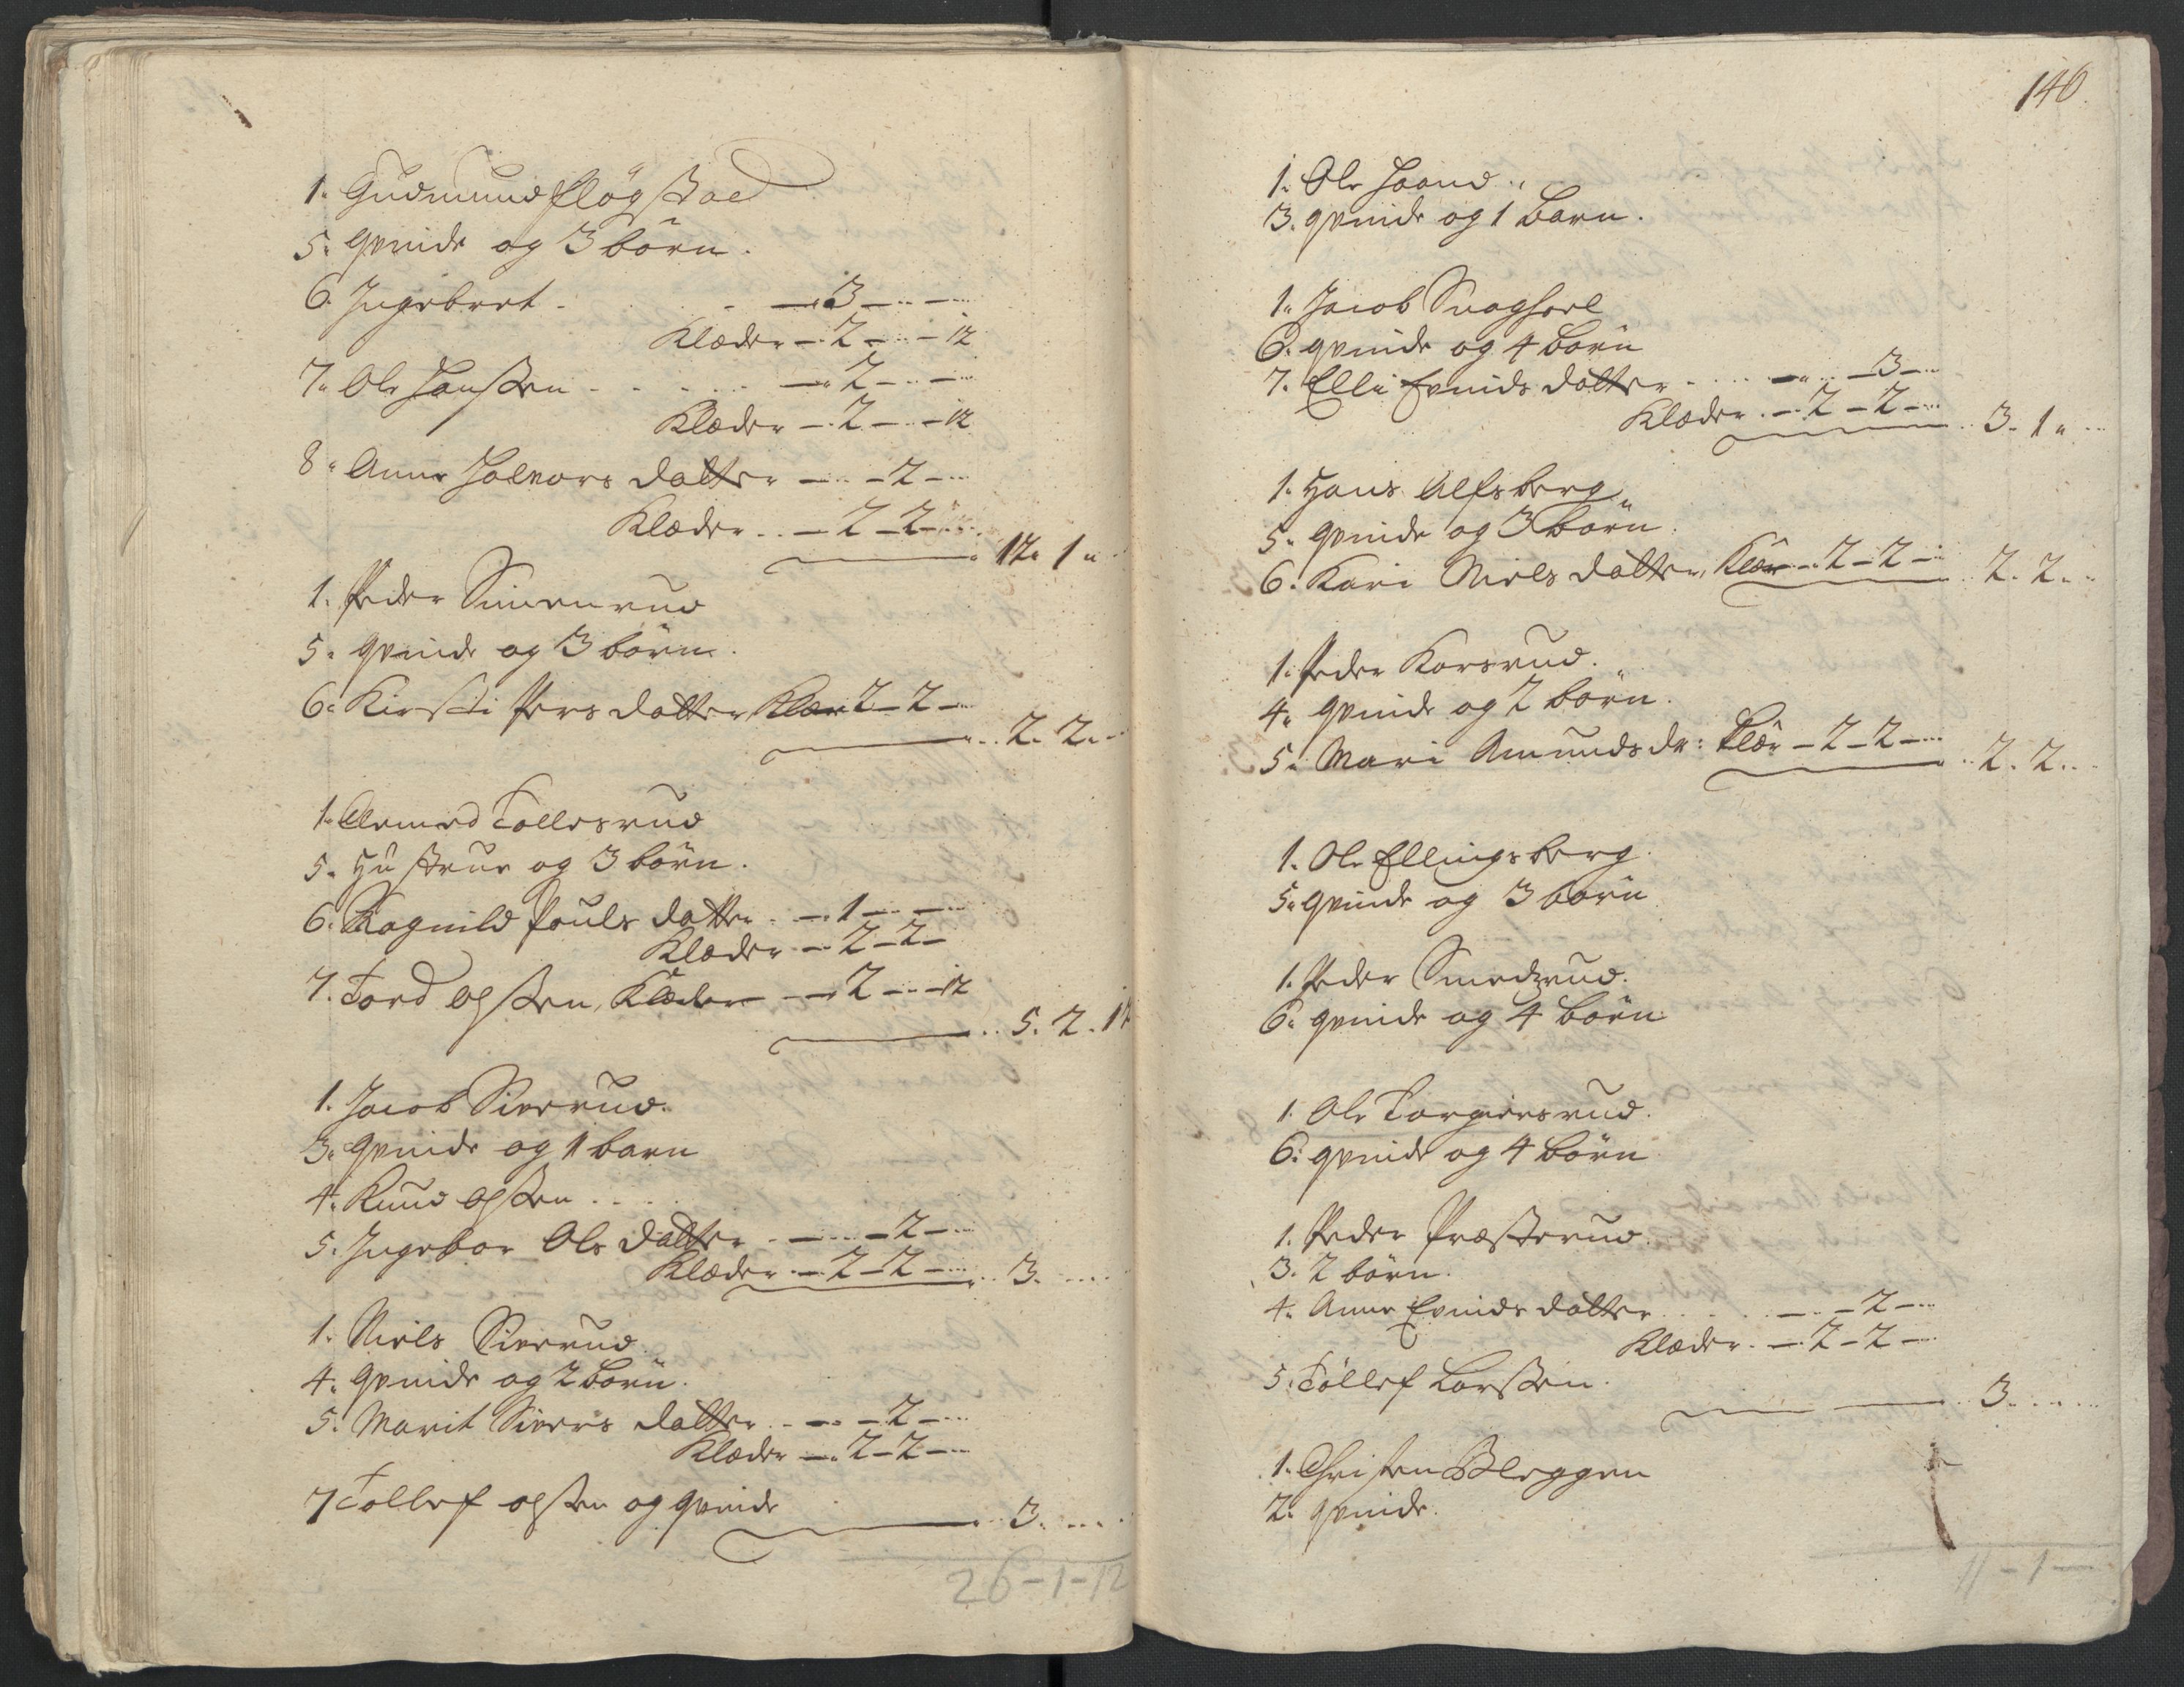 1. Gudmund Fløgstad
5. Qvinde og 3 börn.
6. Ingebret - - 3 - -
Klæder - 2 - - 12
7. Ole Hanssen - - 2 - -
Klæder - 2 - - 12
8. Anne Halvors datter - - 2 -
Klæder - 2 - 2 -
12. 1 "
1. Peder Simenrud
5. Qvinde og 3 börn.
6. Kirsti Pers datter Klær 2 - 2 -
2. 2. -
1. Tollesrud
5. Hustrue og 3 börn.
6. Ragnild Pouls datter. - 1 - -
Klæder - 2 - 2 -
7. Tord Olssen, Klæder - 2 - - 12
5. 2. 12
1. Jacob Sierrud.
3. Qvinde og 1 barn
4. Knud Olssen
5. Ingebor Ols datter - - 2 -
Klæder - 2 - 2 - 3.
1. Niels Sierrud
4. Qvinde og 2 börn.
5. Marit Sivers datter - - 2 -
Klæder - 2 - 2 -
7 Tollef olssen og qvinde
3.
26 - 1 - 12
146.
1. Ole Haand
3. qvinde og 1 Barn.
1. Jacob
6. qvinde og 4 börn
7. Elli Evinds datter - - 3 -
Klæder - 2 - 2 - 3. 1 "
1. Hans Alfsberg
5. Qvinde og 3 börn.
6. Kari Niels datter, Klær - 2 - 2 - 2. 2.
1. Peder Korsrud.
4. Qvinde og 2 börn.
5. Mari Amundsdr: Klær - 2 - 2 - 2. 2.
1. Ole Ellingsberg.
5. Qvinde og 3 börn
1. Peder Smedsrud.
6. qvinde og 4 börn
1. Ole Torgiersrud.
6. qvinde og 4 börn
1. Peder Præsterud.
3. 2 börn.
4. Anne Evinds datter - - 2 -
Klæder. - 2 - 2 -
5. Tollef Larssen.
3.
1. Christen Bleggen
2. qvinde.
11 - 1 -